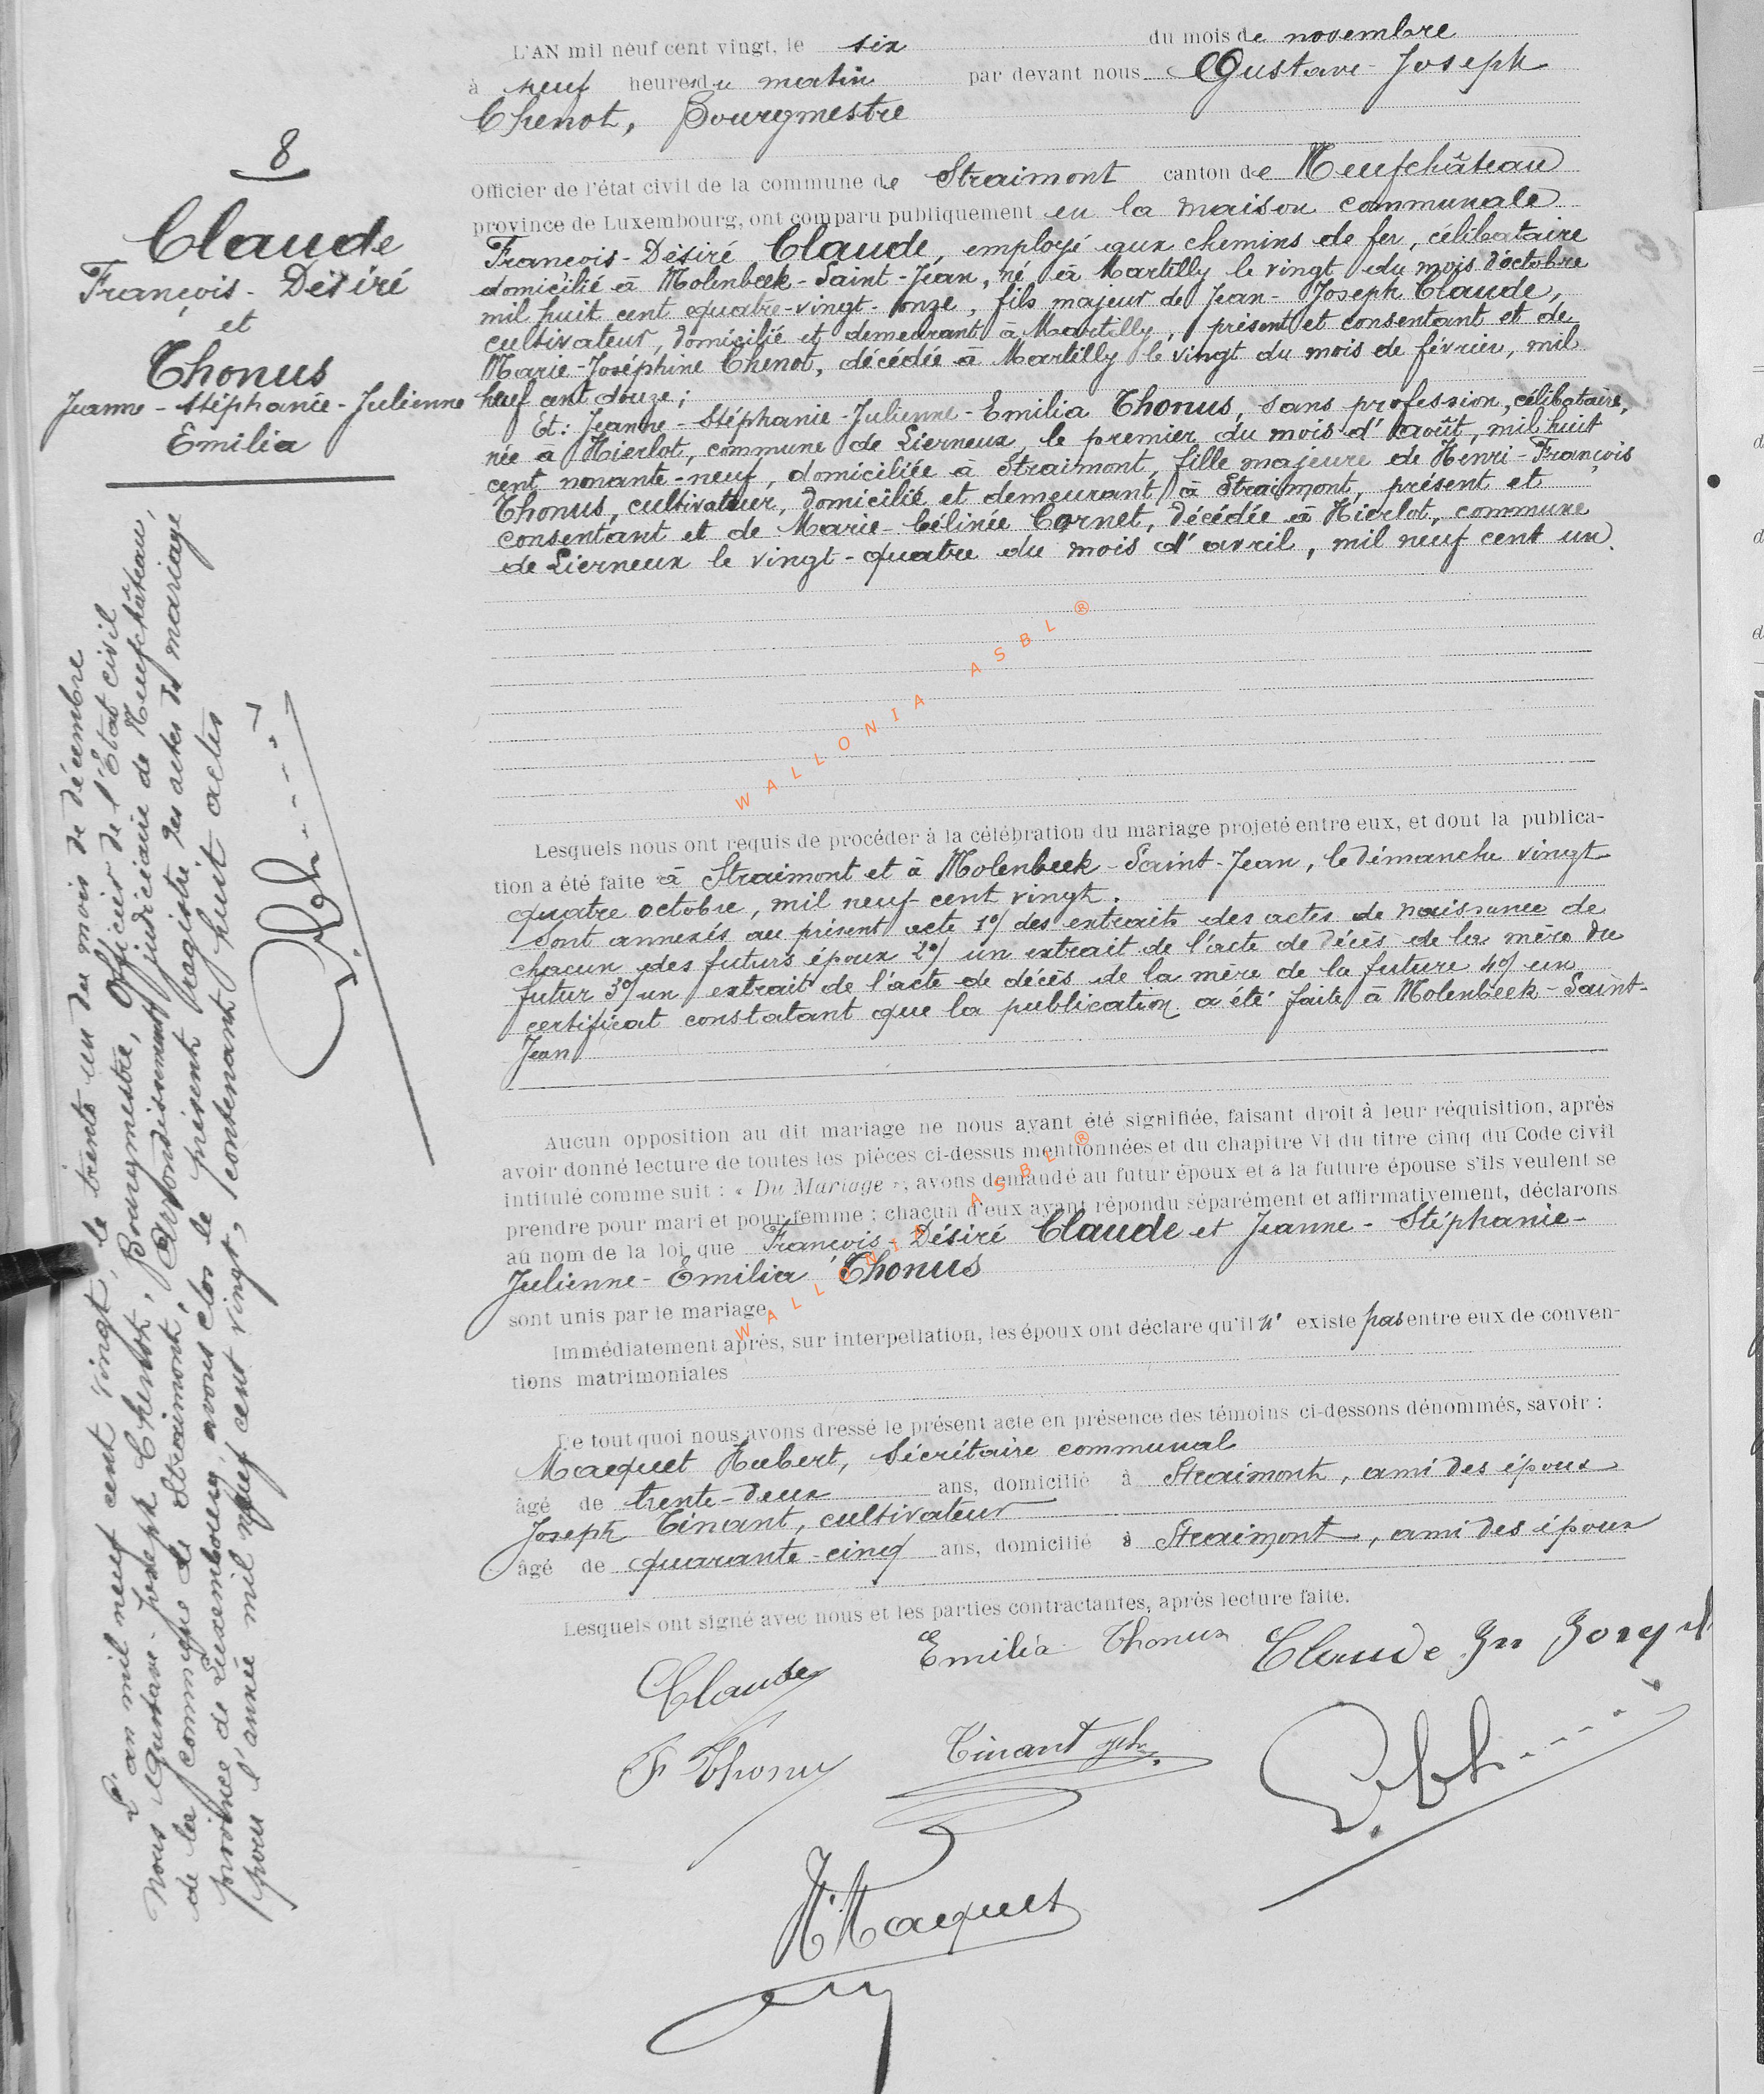 8
Claude
François-Désiré
et
Thonus
Jeanne-Stéphanie-Julienne
Emilia
L'AN mil neuf cent vingt, le six du mois de novembre
à neuf heures du matin par devant nous Gustave-Joseph
Chenot, Bourgmestre
Officier de l'état civil de la commune de Straimont canton de Neufchâteau
province de Luxembourg, ont comparu publiquement en la maison communale
François-Désiré Claude, employé aux chemins de fer, célibataire
domicilié à Molenbeek-Saint-Jean, né à Martilly le vingt du mois d'octobre
mil huit cent quatre-vingt-onze, fils majeur de Jean-Joseph Claude,
cultivateur, domicilié et demeurant à Martilly, présent et consentant et de
Marie-Joséphine Chenot, décédée à Martilly le vingt du mois de février, mil
neuf cent douze;
Et: Jeanne-Stéphanie-Julienne-Emilia Thonus, sans profession, célibataire,
née à Hierlot, commune de Lierneux, le premier du mois d'août, mil huit
cent nonante-neuf, domiciliée à Straimont, fille majeure de Henri-François
Thonus, cultivateur, domicilié et demeurant à Straimont, présent et
consentant et de Marie-Célinie Cornet, décédée à Hierlot, commune
de Lierneux le vingt-quatre du mois d'avril, mil neuf cent un.
WALLONIA ASBL ®
Lesquels nous ont requis de procéder à la célébration du mariage projeté entre eux, et dont la publica-
tion a été faite à Straimont et à Molenbeek-Saint-Jean, le dimanche vingt
quatre octobre, mil neuf cent vingt.
Sont annexés au présent acte 1°/ des extraits des actes de naissance de
chacun des futurs époux 2°/ un extrait de l'acte de décès de la mère du
futur 3°/ un extrait de l'acte de décès de la mère de la future 4°/ un
certificat constatant que la publication a été faite à Molenbeek-Saint-
Jean
Aucun opposition au dit mariage ne nous ayant été signifiée, faisant droit à leur réquisition, après
avoir donné lecture de toutes les pièces ci-dessus mentionnées et du chapitre VI du titre cinq du Code civil
intitulé comme suit : « Du Mariage », avons demandé au futur époux et à la future épouse s'ils veulent se
prendre pour mari et pour femme ; chacun d'eux ayant répondu séparément et affirmativement, déclarons
au nom de la loi que François-Désiré Claude et Jeanne-Stéphanie-
Julienne-Emilia Thonus
sont unis par le mariage.
WALLONIA ASBL ®
Immédiatement après, sur interpellation, les époux ont déclaré qu'il n' existe pas entre eux de conven-
tions matrimoniales
De tout quoi nous avons dressé le présent acte en présence des témoins ci-dessons dénommés, savoir :
Maequet Hubert, Sécrétaire communal
âgé de trente-deux ans, domicilié à Straimont, ami des époux
Joseph Tinant, cultivateur
âgé de quarante-cinq ans, domicilié à Straimont, ami des époux
Lesquels ont signé avec nous et les parties contractantes, après lecture faite.
Claude
Emilia Thonus
Claude Jn Joseph
F Thonus
Tinant Jph
H Maquet
L'an mil neuf cent vingt, le trente un du mois de décembre
Nous Gustave-Joseph Chenot, Bourgmestre, Officier de l'État civil
de la commune de Straimont, Arrondissement judiciaire de Neufchâteau,
province de Luxembourg, avons clos le présent registre des actes de mariage
pour l'année mil neuf cent vingt, contenant huit actes